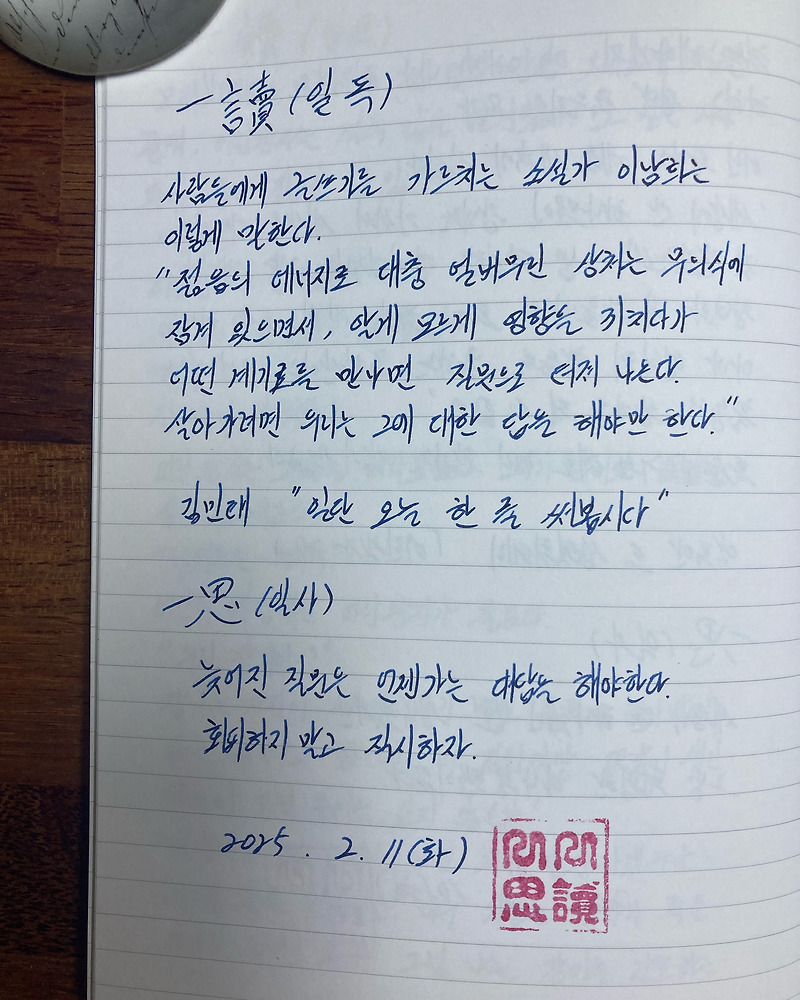 一讀(일독)
사람들에게 글쓰기를 가르치는 소설가 이남희는
이렇게 말한다.
"젊음의 에너지로 대충 얼버무린 상처는 무의식에
잠겨 있으면서, 알게 모르게 영향을 끼치다가
어떤 계기를 만나면 질문으로 터져 나온다.
살아가려면 우리는 그에 대한 답을 해야만 한다."
김민태 "일단 오늘 한 줄 써봅시다"
一思(일사)
늦어진 질문은 언젠가는 대답을 해야한다.
회피하지 말고 직시하자.
2025. 2. 11(화)
思 讀